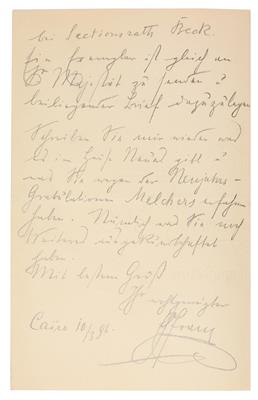 bei Sectionsrath Beck.
Ein Exemplar ist gleich an
S Majestät zu senden u
beiliegender Brief dazuzulegen
Schreiben Sie mir wieder was
es im Hause Neues gibt u
was Sie wegen der Neujahrs-
Gratulationen Melchers erfahren
haben. Nämlich was Sie noch
Weiteres ausgekundschaftet
haben.
Mit bestem Gruß
Ihr wohlgeneigter
Cairo 10/3 94.